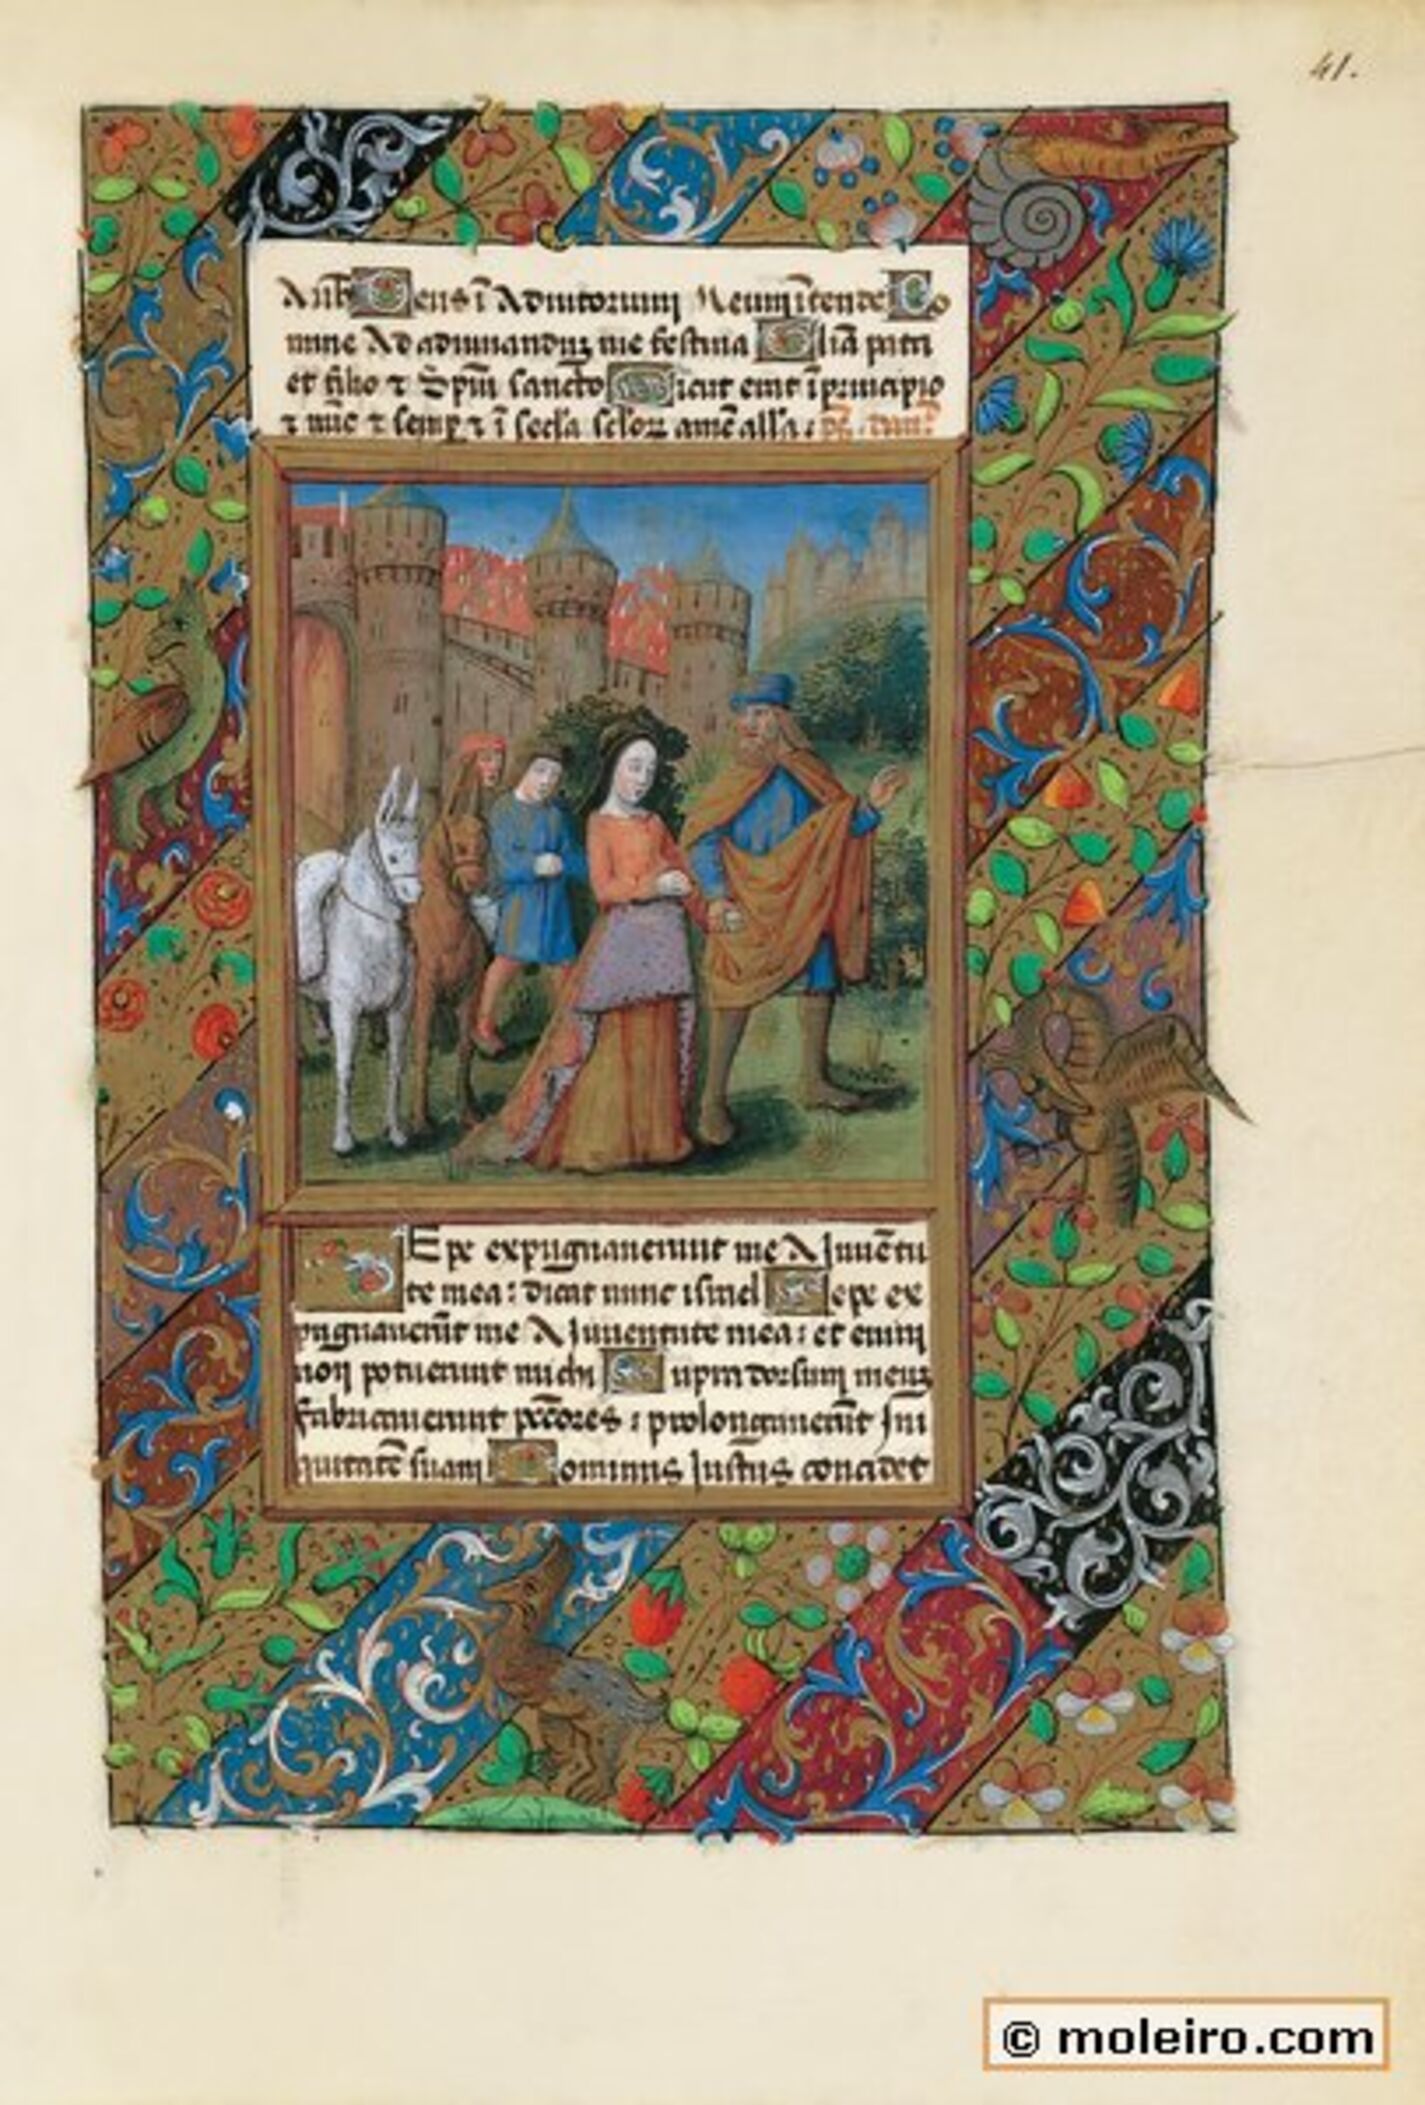 41.
Deus ī Adiutorium Meum ītende Do
mine Ad adiuuanduȝ me festina Gliā patri
et filio ⁊ Spūi sancto Sicut erat ī principio
⁊ nūc ⁊ semꝑ ⁊ ī secła secłoꝝ amē alła:
Epe expugnauerunt me A Juuētu
te mea: dicat nunc israel Sepe ex
pugnauerūt me A Juuentute mea: et enim
non potuerunt michi Supra dorsum meuȝ
fabricauerunt pctōres: prolongauerūt Ini
quitatē suam Dominus Justus concidet
© moleiro.com